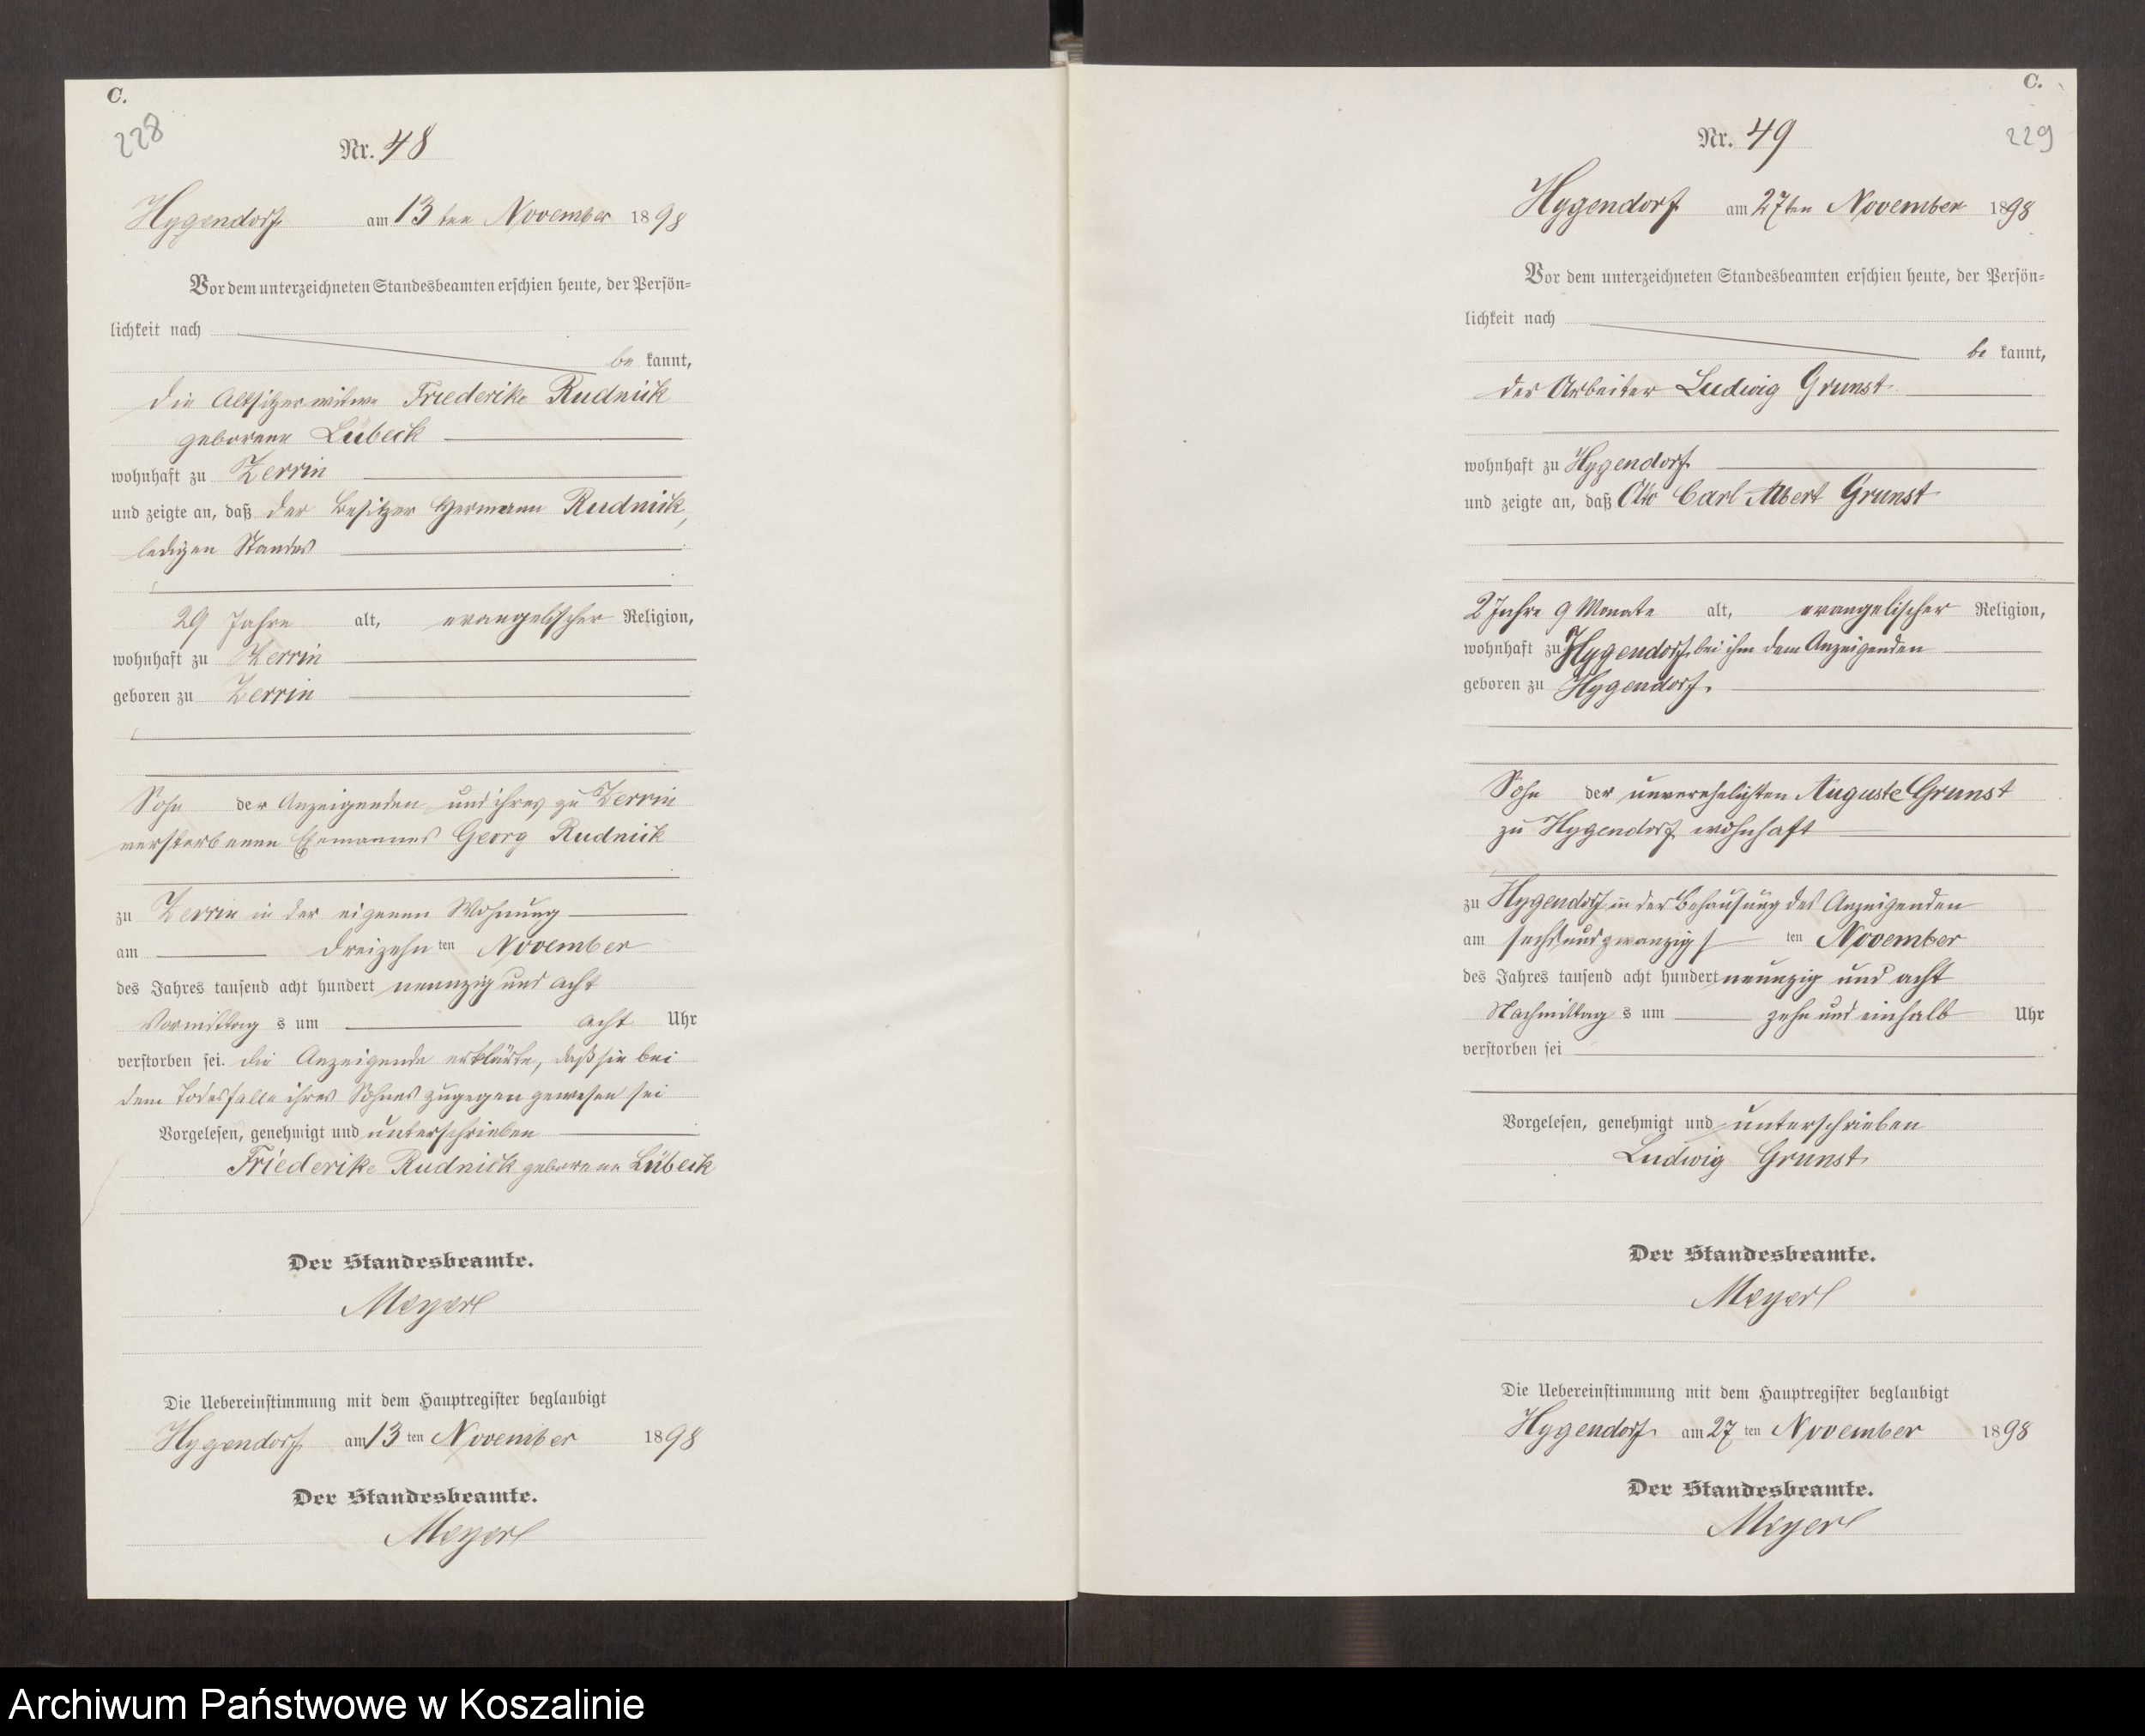 C.
228
Nr. 48
Hygendorf am 13ten November 1898
Vor dem unterzeichneten Standesbeamten erschien heute, der Persön-
lichkeit nach
be kannt,
die Altsitzerwitwe Friederike Rudnick
geborene Lübeck
wohnhaft zu Zerrin
und zeigte an, daß der Besitzer Hermann Rudnick,
ledigen Standes
29 Jahre alt, evangelischer Religion,
wohnhaft zu Zerrin
geboren zu Zerrin
Sohn der Anzeigenden und ihres zu Zerrin
verstorbenen Ehemannes Georg Rudnick
zu Zerrin in der eigenen Wohnung
am dreizehn ten November
des Jahres tausend acht hundert neunzig und acht
Vormittag s um acht Uhr
verstorben sei. die Anzeigende erklärte, daß sie bei
dem Todesfalle ihres Sohnes zugegen gewesen sei
Vorgelesen, genehmigt und unterschrieben
Friederike Rudnick geborene Lübeck
Der Standesbeamte.
Meyerl
Die Uebereinstimmung mit dem Hauptregister beglaubigt
Hygendorf am 13 ten November 1898
Der Standesbeamte.
Meyerl
C.
229
Nr. 49
Hygendorf am 27ten November 1898
Vor dem unterzeichneten Standesbeamten erschien heute, der Persön-
lichkeit nach
be kannt,
der Arbeiter Ludwig Grunst
wohnhaft zu Hygendorf
und zeigte an, daß Otto Carl Albert Grunst
2 Jahre 9 Monate alt, evangelischer Religion,
wohnhaft zu Hygendorf bei ihm dem Anzeigenden
geboren zu Hygendorf.
Sohn der unverehelichten Auguste Grunst
zu Hygendorf wohnhaft
zu Hygendorf in der Behausung des Anzeigenden
am sechsundzwanzigs ten November
des Jahres tausend acht hundert neunzig und acht
Nachmittag s um zehn und einhalb Uhr
verstorben sei
Vorgelesen, genehmigt und unterschrieben
Ludwig Grunst
Der Standesbeamte.
Meyerl
Die Uebereinstimmung mit dem Hauptregister beglaubigt
Hygendorf am 27 ten November 1898
Der Standesbeamte.
Meyerl
Archiwum Państwowe w Koszalinie